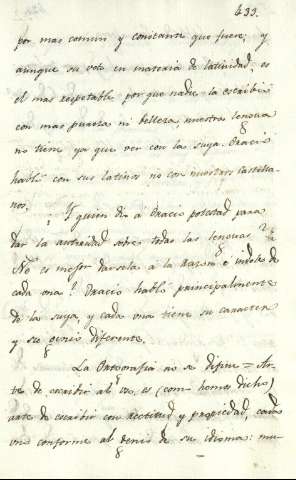 433.
por mas comun y constante que fuere; y
aunque su voto en materia de latinidad es
el mas respetable por que nadie la escribió
con mas pureza ni belleza, nuestra lengua
no tiene ya que ver con la suya. Oracio
habló con sus latinos no con nuestros castella-
nos.
¿Y quien dio a Oracio potestad para
dar la autoridad sobre todas las lenguas?
No es mejor darsela à la razon è indole de
cada una? Oracio habló principalmente
de la suya, y cada una tiene su caracter
y su genio diferente.
La Ortografia no se difine = Ar-
te de escribir al uso, es (como hemos dicho)
arte de escribir con rectitud y propiedad, cada
uno conforme al genio de su idioma: mu-